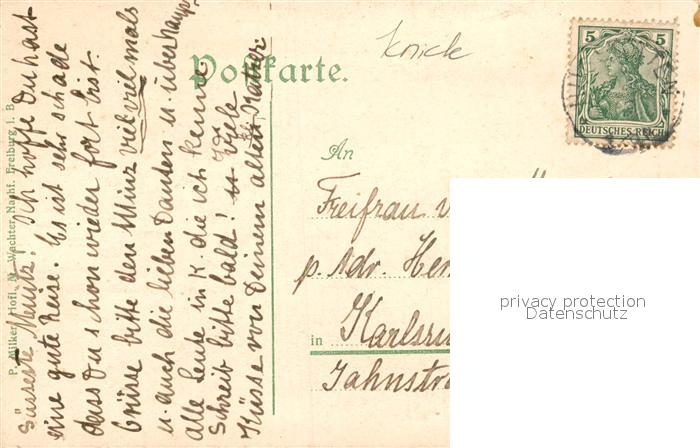 Süsseste Mensch! Ich hoffe Du hast
eine gute Reise. Es ist sehr schade
dass Du schon wieder fort bist.
Grüsse bitte den Minz viel viel mals
u. auch die lieben Tanten u. überhaupt
alle Leute in K. die ich kenne
Schreib bitte bald! Viele
Küsse von Deinem alten
P. Milker, Hofl. M. Wachter, Nachf. Freiburg i. B.
Postkarte.
knick
5 5
DEUTSCHES REICH
An
Freifrau
p. Adr.
in Karlsru
Jahnstra
privacy protection
Datenschutz